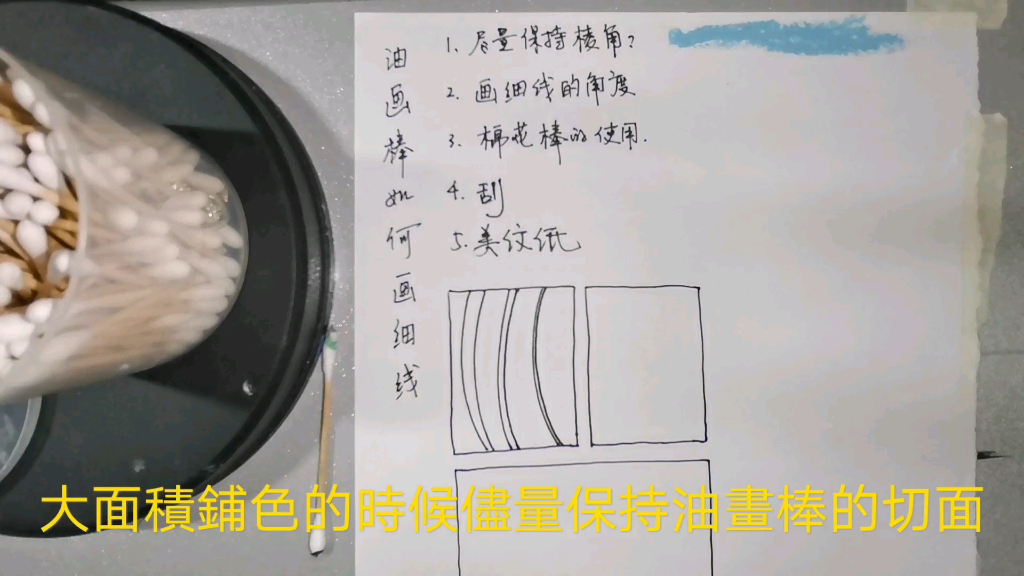 油画棒如何画细线
1. 尽量保持棱角?
2. 画细线的角度
3. 棉花棒的使用.
4. 刮
5. 美纹纸
大面積鋪色的時候儘量保持油畫棒的切面